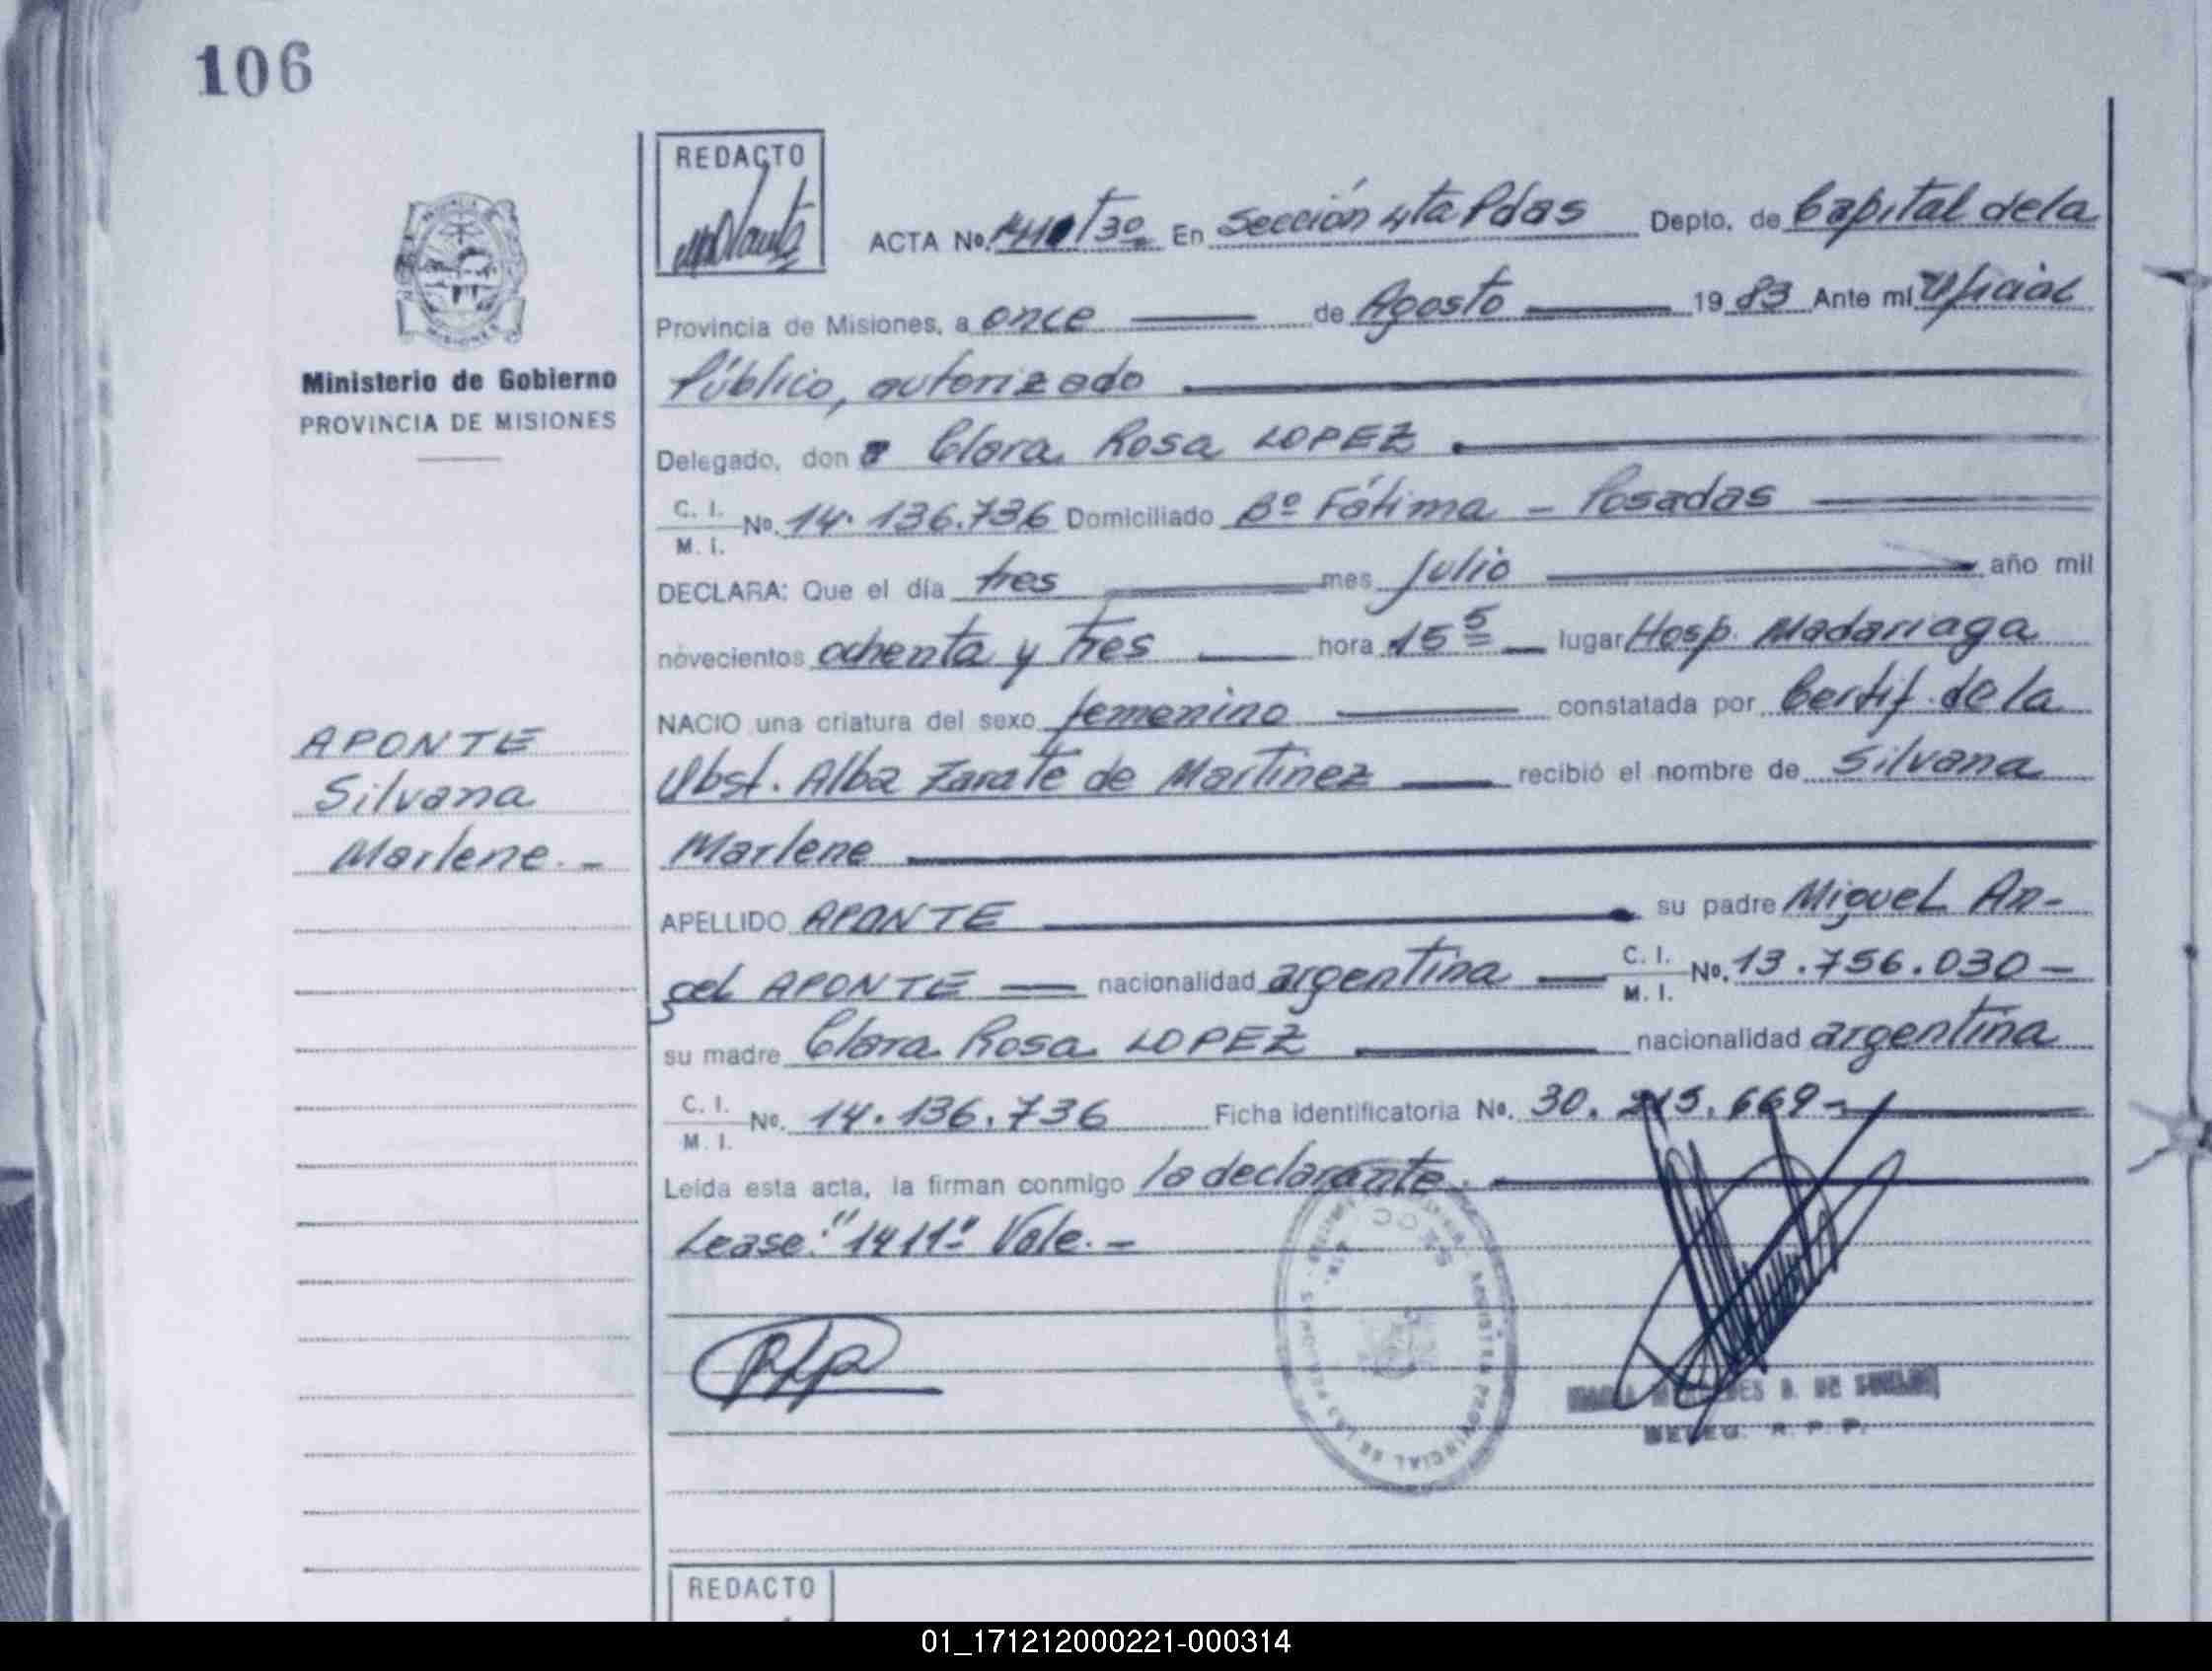 106
REDACTO
ACTA No. 1411/30 En Sección 4ta Pdas Depto. de Capital de la
Provincia de Misiones, a once de Agosto 1983 Ante mí Oficial
Público, autorizado
Delegado, don Clara Rosa LOPEZ
C. I.
M. I. No. 14.136.736 Domiciliado Bº Fátima - Posadas
DECLARA: Que el día tres mes Julio año mil
novecientos ochenta y tres hora 15 5 lugar Hosp. Madariaga
NACIO una criatura del sexo femenino constatada por Certif. de la
Obst. Alba Zarate de Martinez recibió el nombre de Silvana
Marlene
APELLIDO APONTE su padre Miguel An-
gel APONTE nacionalidad argentina C. I.
M. I. No. 13.756.030-
su madre Clara Rosa LOPEZ nacionalidad argentina
C. I.
M. I. No. 14.136.736 Ficha identificatoria No. 30. 215.669-
Leída esta acta, la firman conmigo la declarante.
Lease: "1411" Vale.-
Ministerio de Gobierno
PROVINCIA DE MISIONES
APONTE
Silvana
Marlene.-
REGISTRO PROVINCIAL DE LAS PERSONAS
DE
R. P. P.
REDACTO
01_171212000221-000314